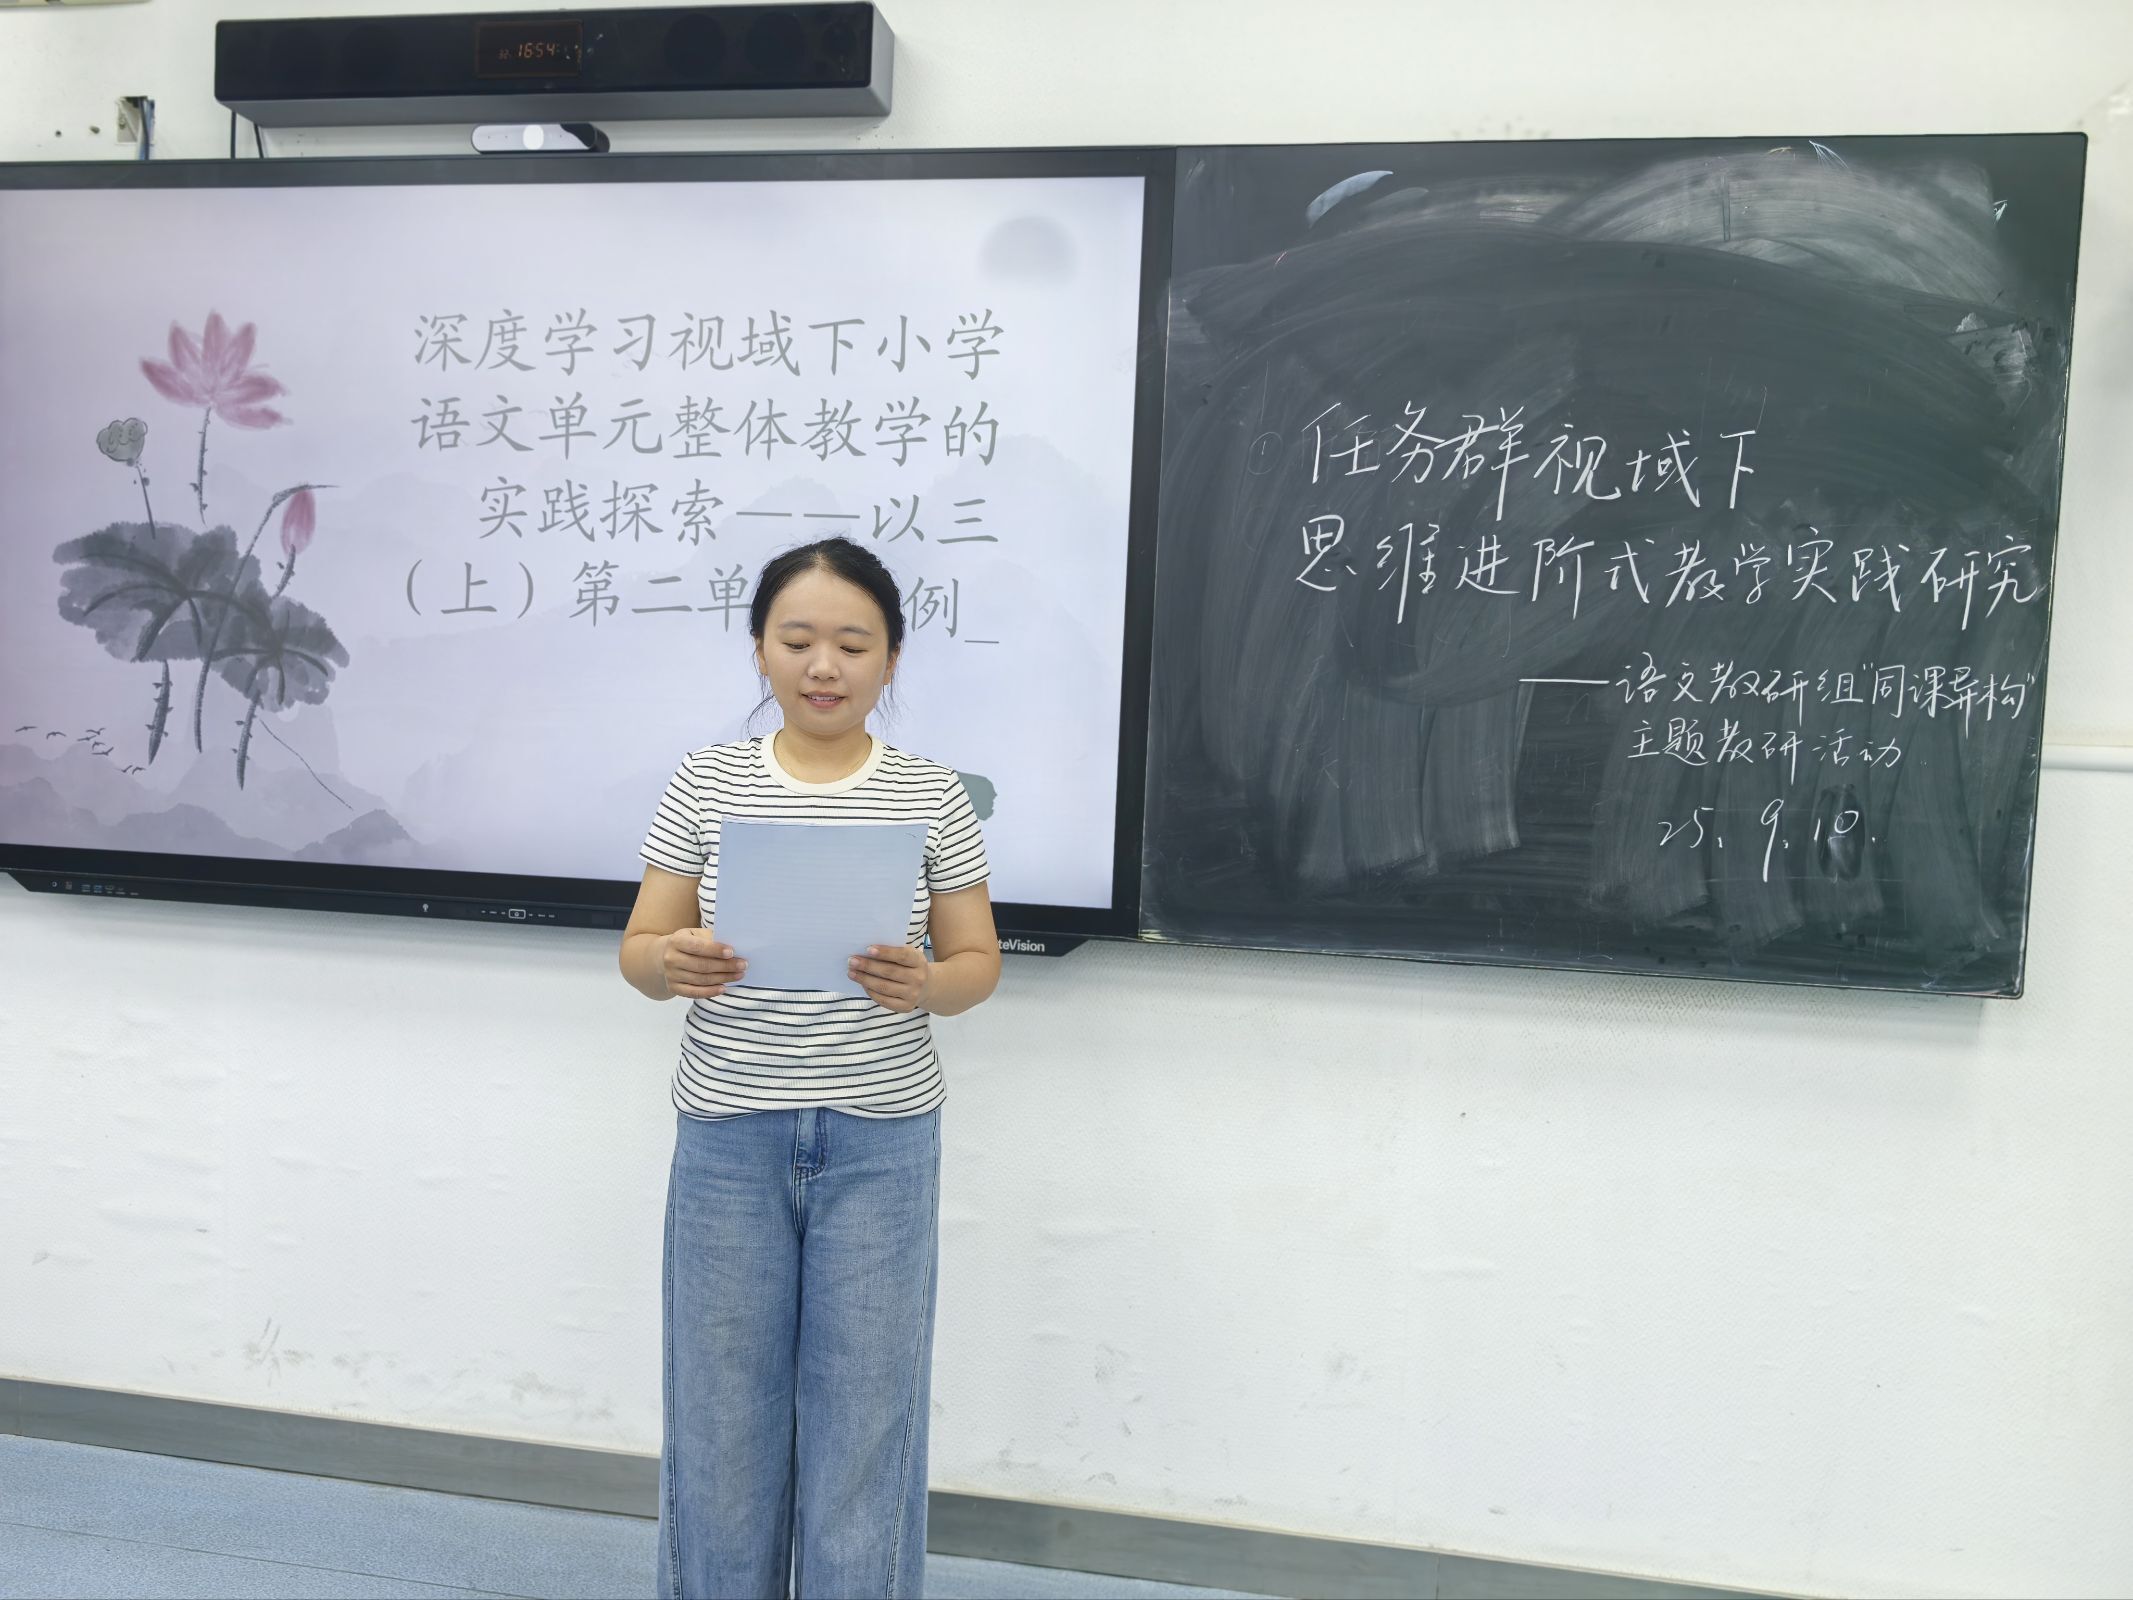 16:54
深度学习视域下小学
语文单元整体教学的
实践探索——以三
（上）第二单 例_
任务群视域下
思维进阶式教学实践研究
——语文教研组"同课异构"
主题教研活动
25.9.10.
teVision